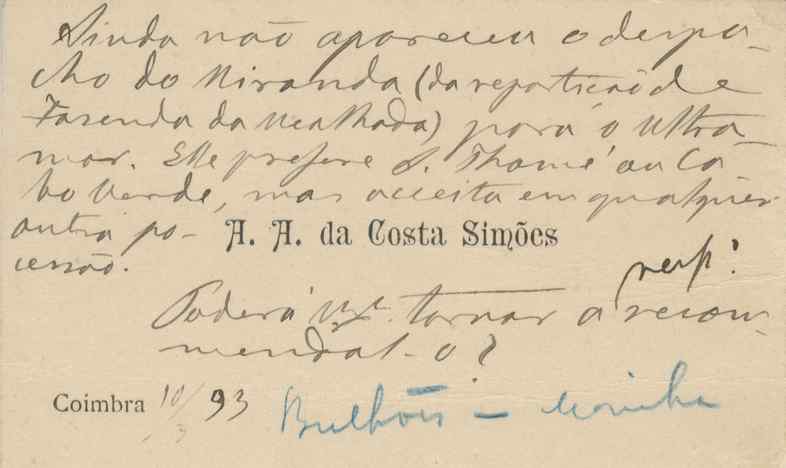 Ainda não appareceu o despa-
cho do Miranda (da repartição de
Fazenda da Mealhada) para o Ultra
mar. Elle prefere S. Thomé ou Ca
bo Verde, mas acceita em qualquer
outra po-
cessão.
A. A. da Costa Simões
resp.
Poderá tornar a recom-
mendal-o?
Coimbra 10/3 93
Bulhões - Marinha